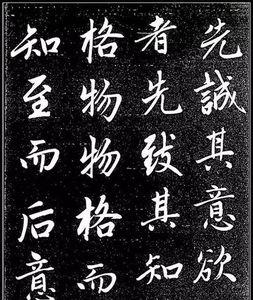 先誠其意欲
者先致其知
格物物格而
知至而后意